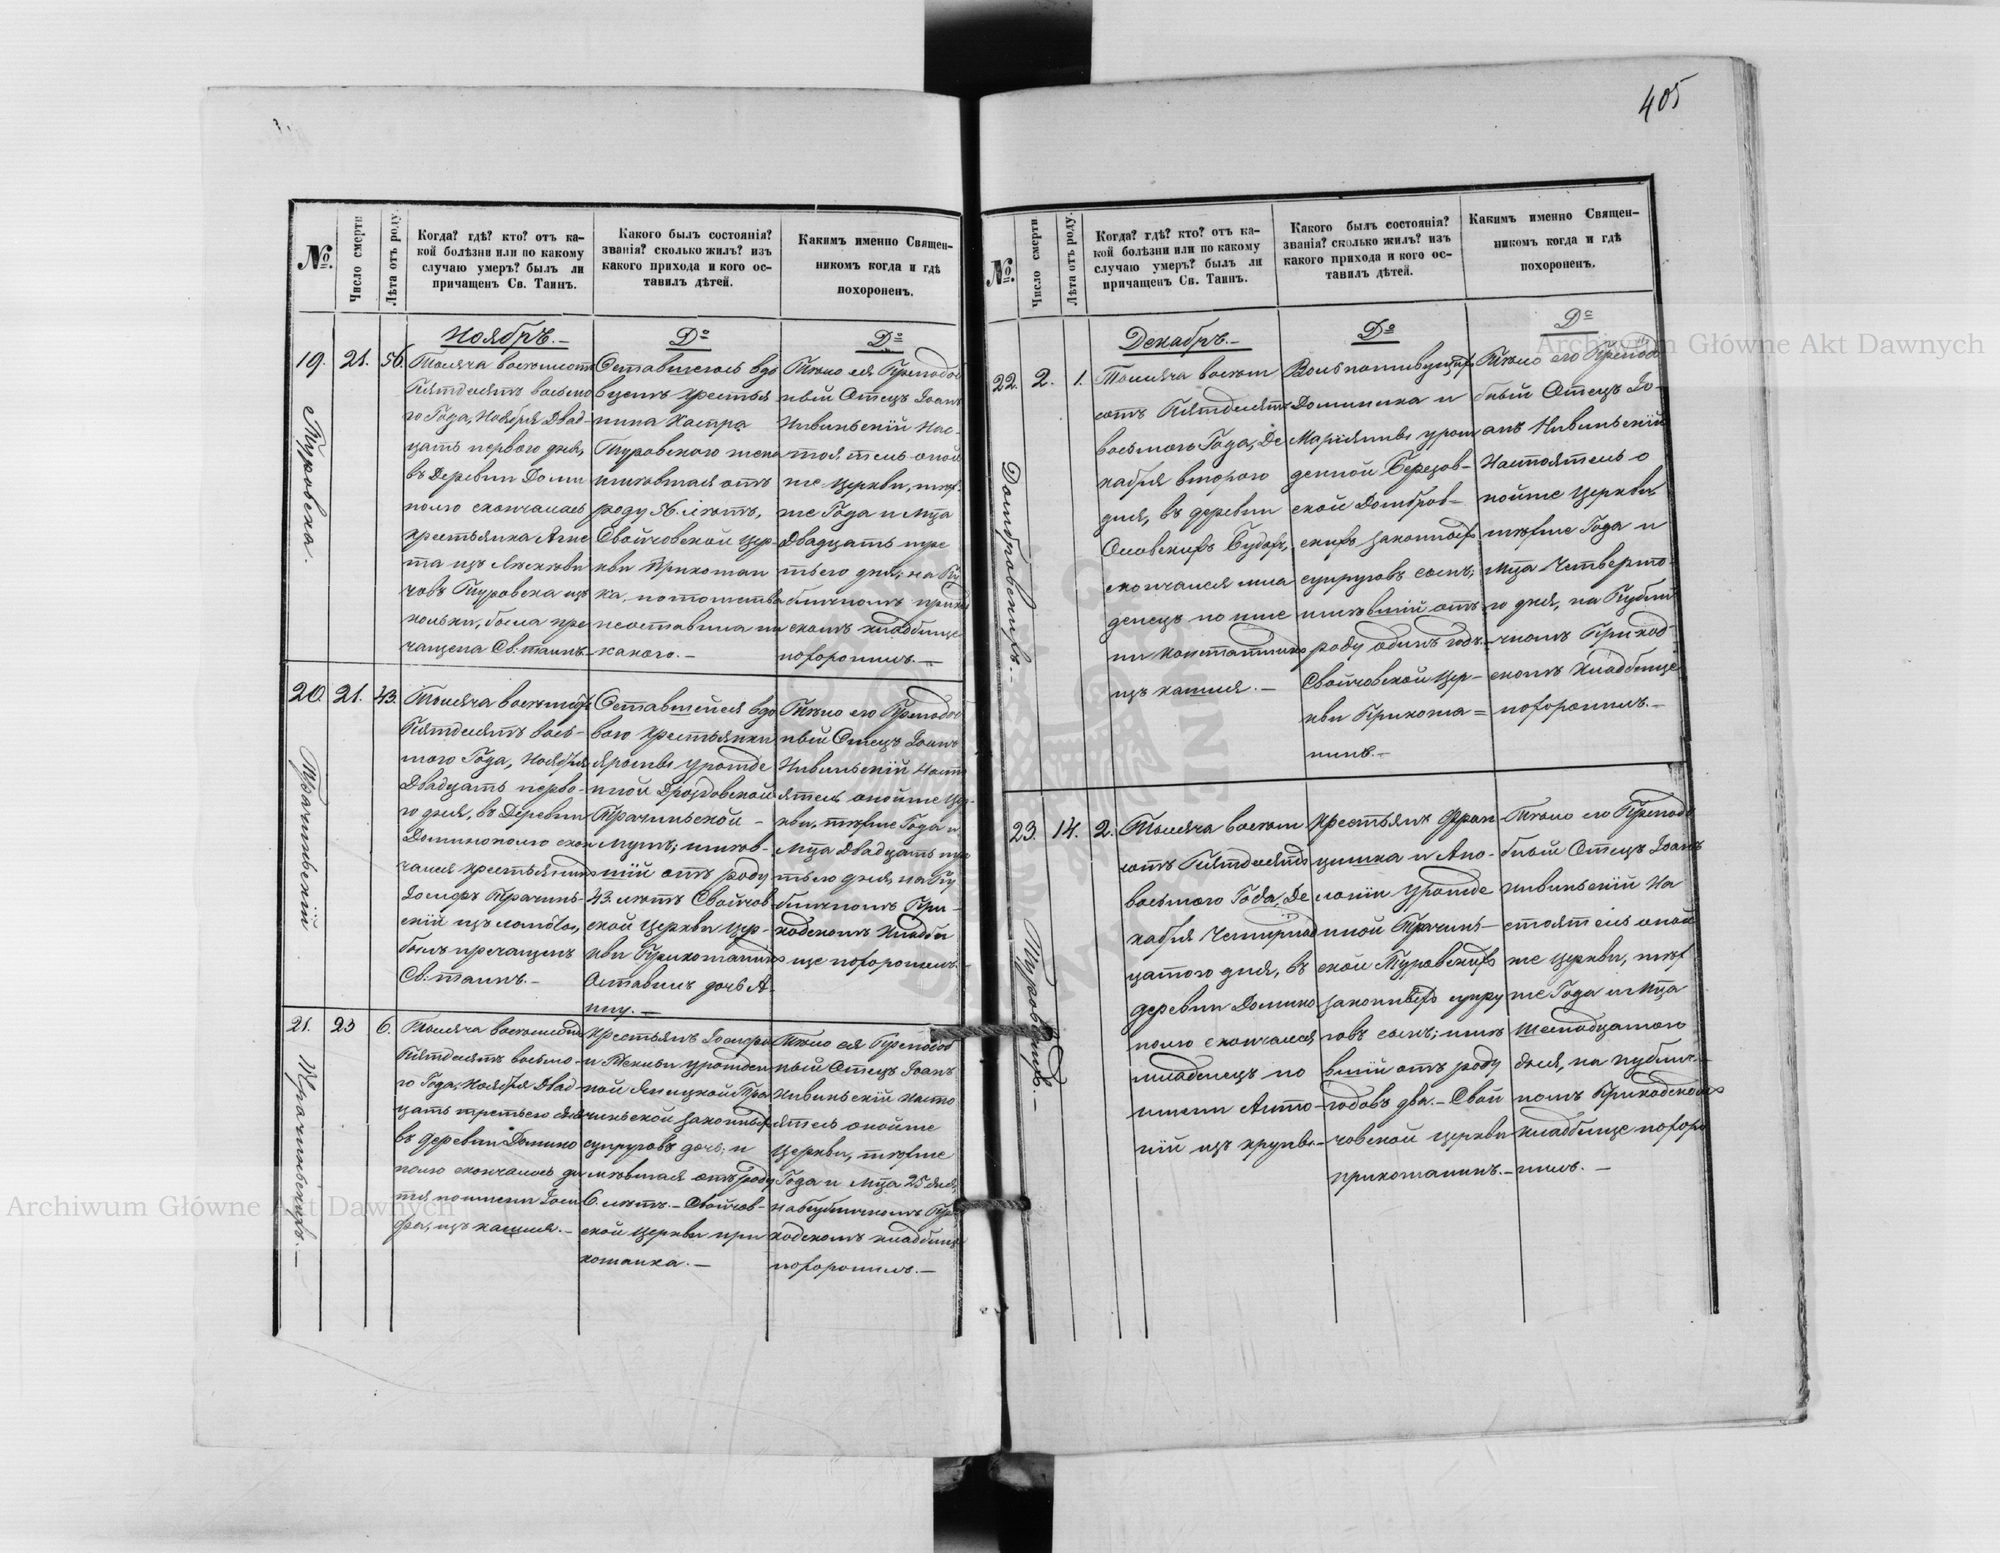 405
№
Число смерти
Лѣта отъ роду.
Когда? гдѣ? кто? отъ ка-
кой болѣзни или по какому
случаю умеръ? былъ ли
причащенъ Св. Таинъ.
Какого былъ состоянія?
званія? сколько жилъ? изъ
какого прихода и кого ос-
тавилъ дѣтей.
Какимъ именно Священ-
никомъ когда и гдѣ
похороненъ.
Ноябрь.–
До
До
19.
21.
56.
Туровска.
Тысяча восемьсотъ
Пятдесятъ восьмо
го Года, Ноября Двад-
цать перваго дня,
въ Деревни Доми
полю скончалась
крестьянка Агне
та изъ
Туровска изъ
кольки, была пре
чащена Св: таинъ.–
Оставшегось вдо
вцемъ крестья
нина Каспра
Туровского жена
имѣвшая отъ
роду 56 лѣтъ,
Свойчовской Цер-
кви Прихожан
ка, потомства
неоставила ни
какого.–
Тѣло ея Преподоб
ный Отецъ Іоанъ
Нивинскій Нас-
тоятель оной
же Церкви, тѣх-
же Года и Мца
Двадцать тре
тьего дня, на Пу
бличномъ приход
скомъ кладбище
похоронилъ.–
20.
21.
43.
Трачиньскій
Тысяча восемьсотъ
Пятдесятъ вось-
мого Года, Ноября
Двадцать перво-
го дня, въ Деревни
Доминополю скон
чался крестьянинъ
Іосифъ Трачинь-
скій изъ
былъ пречащенъ
Св: таинъ.–
Оставшейся вдо
вою крестьянки
урожде
нной Дроздовской
Трачиньской –
мужъ; имѣв-
шій отъ роду
43 лѣтъ Свойчов-
ской Церкви Цер-
кви Прихожанинъ
Оставилъ дочь А-
нну.–
Тѣло его Преподоб
ный Отецъ Іоанъ
Нивинскій Насто
ятель онойже Цер-
кви, тѣхже Года и
Мца Двадцать тре
тьего дня, на Пу
бличномъ При-
ходскомъ Кладби
ще похоронилъ.
21.
23
6.
Трачиньскихъ.–
Тысяча восемьсотъ
Пятдесятъ восьмо-
го Года, Ноября Двад-
цать третьего дня
въ деревни Домино
полю скончалось ди
тя по имени Іозе
фа, изъ кашля.–
Крестьянъ Іосифа
и Теклы урожден
ной Яницкой Тра
чиньской законныхъ
супруговъ дочь; и
мѣвшая отъ роду
6. лѣтъ.– Свойчов-
ской Церкви при
хожанка.–
Тѣло ея Преподоб
ный Отецъ Іоанъ
Нивинскій Насто
ятель онойже
Церкви, тѣхже
Года и Мца 25 дня,
на Публичномъ При
ходскомъ кладбище
похоронилъ.–
№
Число смерти
Лѣта отъ роду.
Когда? гдѣ? кто? отъ ка-
кой болѣзни или по какому
случаю умеръ? былъ ли
причащенъ Св. Таинъ.
Какого былъ состоянія?
званія? сколько жилъ? изъ
какого прихода и кого ос-
тавилъ дѣтей.
Какимъ именно Священ-
никомъ когда и гдѣ
похороненъ.
Декабрь.–
До
До
22.
2.
1.
Домбровскихъ.–
Тысяча восемь
сотъ Пятдесятъ
восьмого Года, Де
кабря второго
дня, въ деревни
Осовскихъ Будахъ,
скончался мла
денецъ по име
ни Константинъ
изъ кашля.–
Вольноживущихъ
Доминика и
Маріянны урож
денной Березов-
ской Домбров-
скихъ законныхъ
супруговъ сынъ;
имѣвшій отъ
роду одинъ годъ.–
Свойчовской Цер-
кви Прихожа=
нинъ.–
Тѣло его Преподо
бный Отецъ Іо-
анъ Нивинскій
Настоятель о
нойже Церкви
тѣхже Года и
Мца Четверто
го дня, на Публи
чномъ Приход
скомъ Кладбище
похоронилъ.–
23.
14.
2.
Туровскихъ.–
Тысяча восемь
сотъ Пятдесятъ
восьмого Года, Де
кабря Четырнад
цатого дня, въ
деревни Домино
полю скончался
младенецъ по
имени Анто-
ній изъ крупъ.–
Крестьянъ Фран
цишка и Апо-
лоніи урожде
нной Трачинь-
ской Туровскихъ
законныхъ супру
говъ сынъ; имѣ
вшій отъ роду
годовъ два.– Свой
човской Церкви
прихожанинъ.–
Тѣло его Преподо
бный Отецъ Іоанъ
Нивинскій На
стоятель оной
же Церкви, тѣх
же Года и Мца
Шестнадцатого
дня, на публич-
номъ Приходскомъ
Кладбище похоро
нилъ.–
Archiwum Główne Akt Dawnych
Archiwum Główne Akt Dawnych